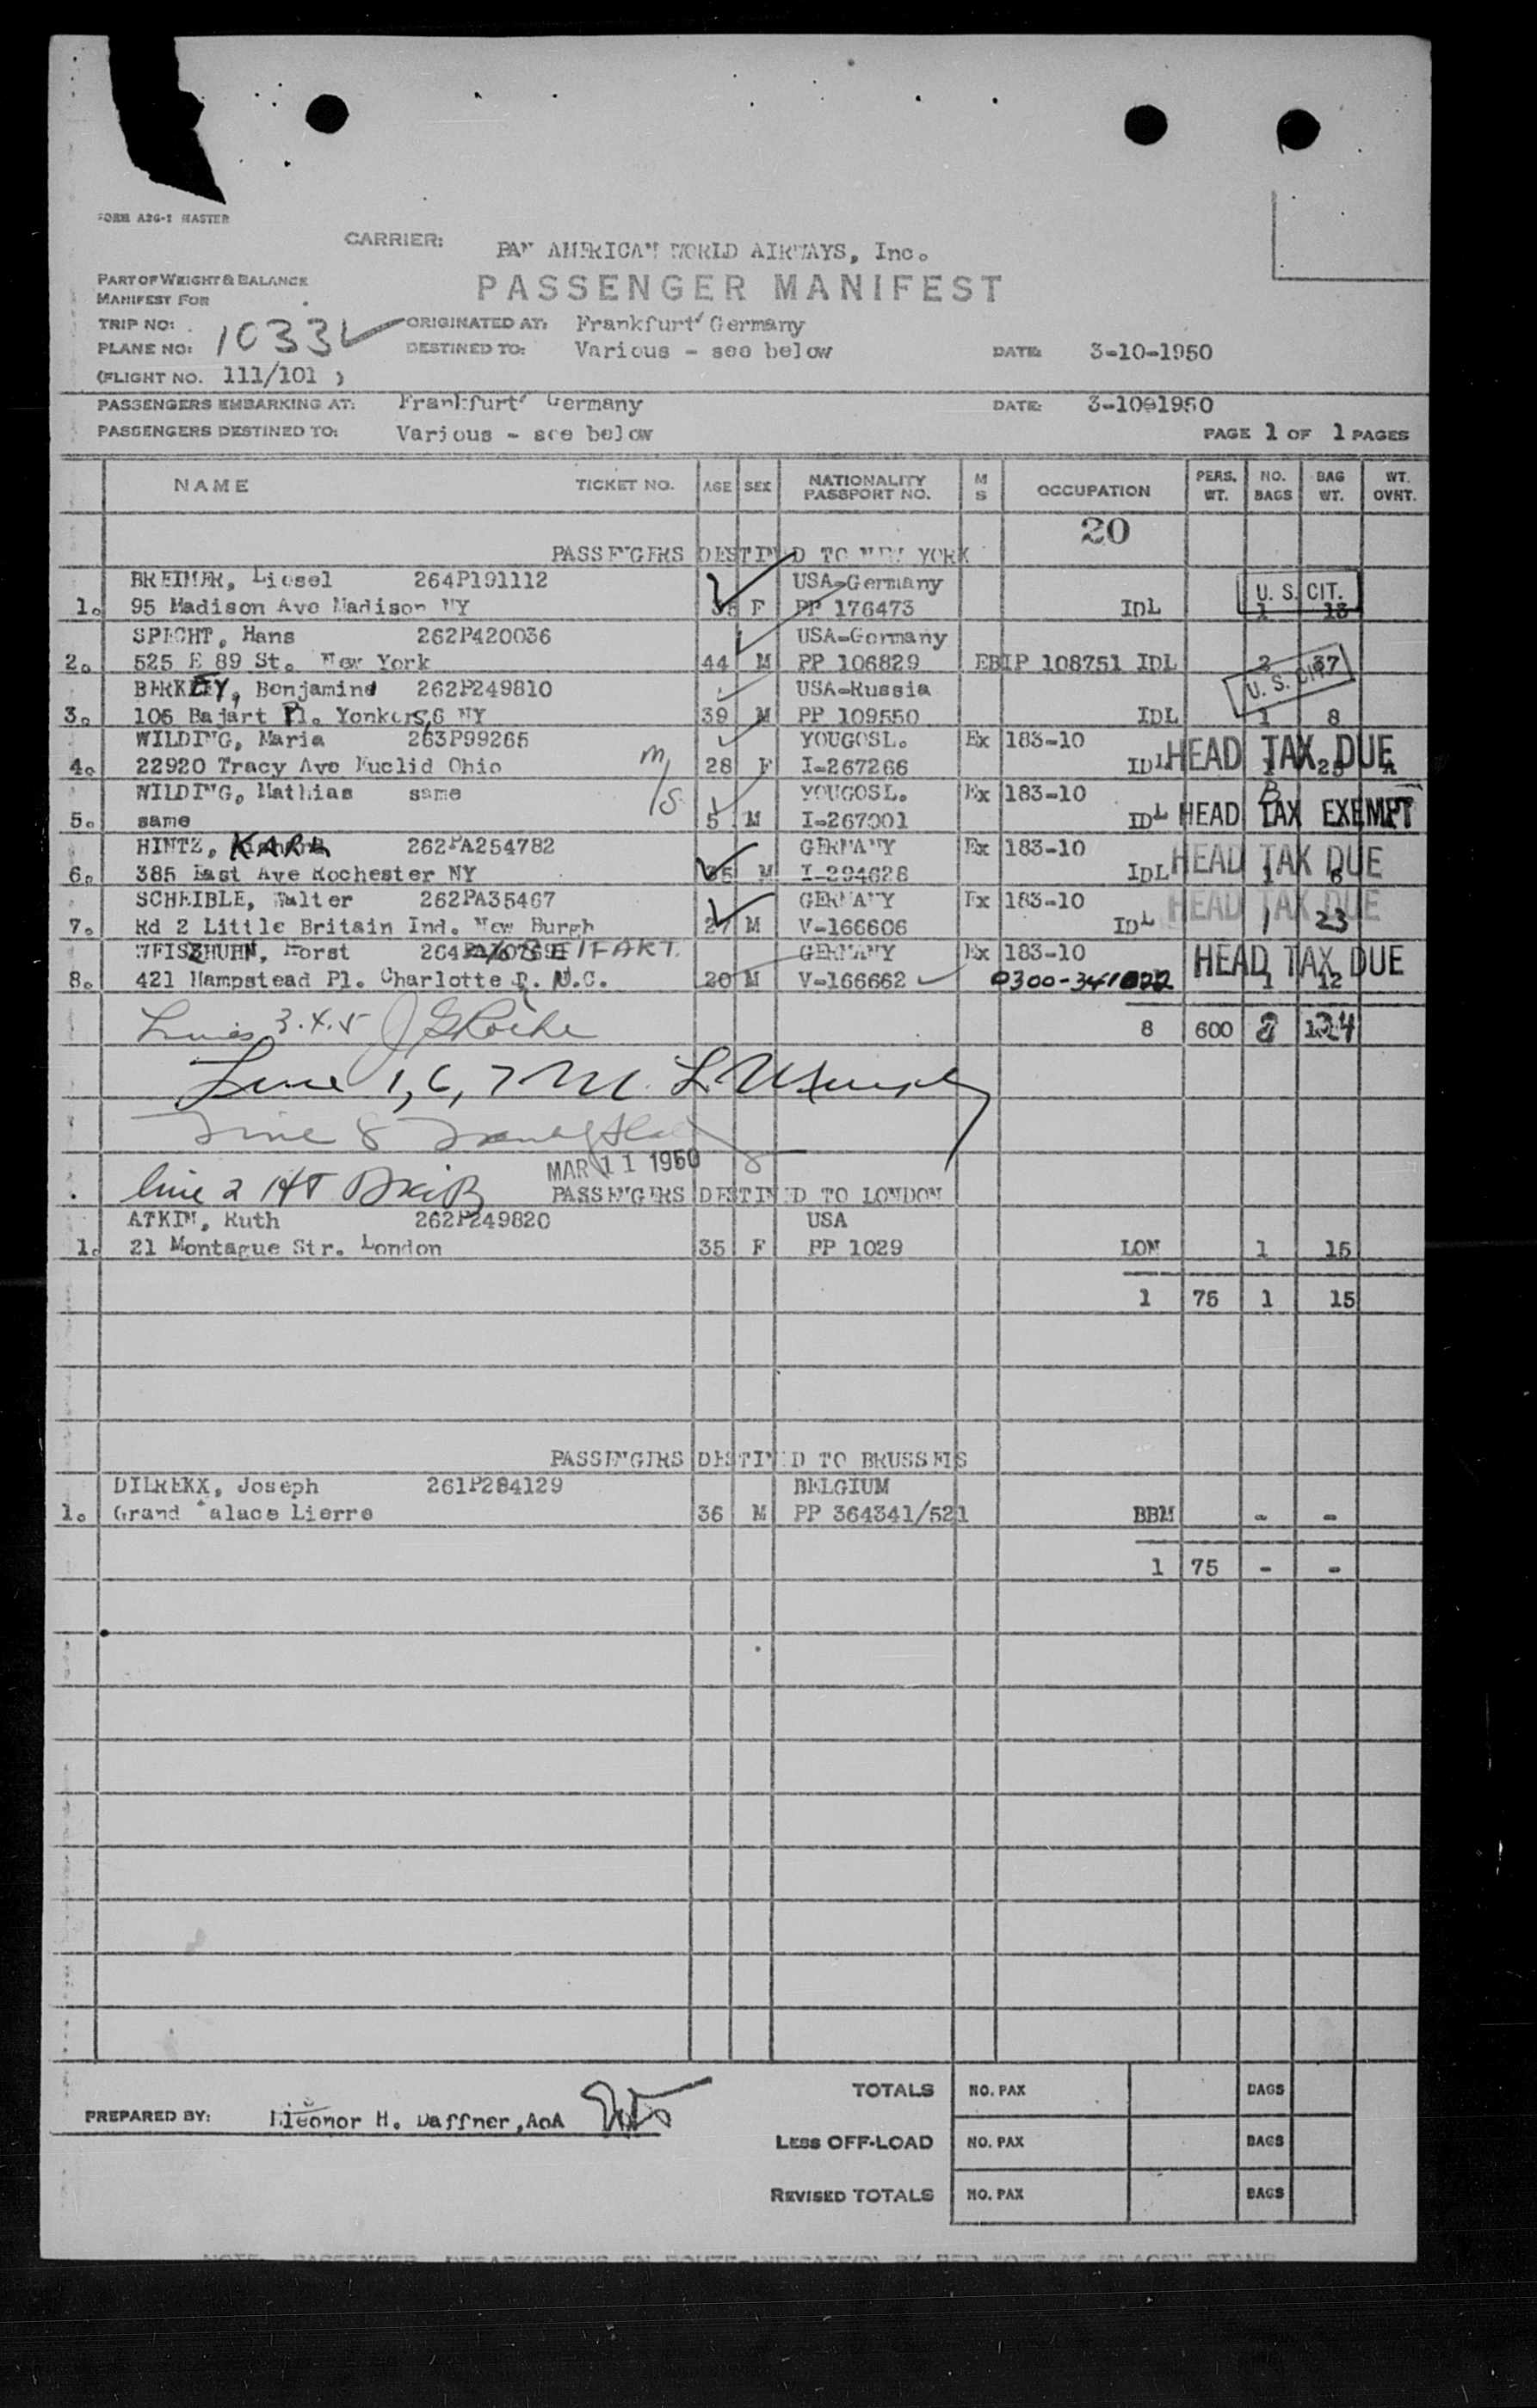 FORM A26-1 MASTER
CARRIER: PAN AMERICAN WORLD AIRWAYS, Inc.
PASSENGER MANIFEST
PART OF WEIGHT & BALANCE
MANIFEST FOR
TRIP NO: ORIGINATED AT: Frankfurt Germany
PLANE NO: 1033 DESTINED TO: Various - see below DATE: 3-10-1950
(FLIGHT NO. 111/101 )
PASSENGERS EMBARKING AT: Frankfurt Germany DATE: 3-1001950
PASSENGERS DESTINED TO: Various - see below PAGE 1 OF 1 PAGES
NAME TICKET NO. AGE SEX NATIONALITY PASSPORT NO. M S OCCUPATION PERS. WT. NO. BAGS BAG WT. WT. OVHT.
20
PASSENGERS DESTINED TO NEW YORK
BREIMER, Liesel 264P191112 USA-Germany U. S. CIT.
1. 95 Madison Ave Madison NY F PP 176473 IDL 1 13
SPECHT, Hans 262P420036 USA-Germany
2. 525 E 89 St. New York 44 M PP 106829 EBIP 108751 IDL 2 37
BERKLEY, Benjamin 262P249810 USA-Russia U. S. CIT
3. 106 Bajart Pl. Yonkers,6 NY 39 M PP 109550 IDL 1 8
WILDING, Maria 263P99265 YOUGOSL. Ex 183-10
4. 22920 Tracy Ave Euclid Ohio M/S 28 F I-267266 IDL HEAD TAX DUE
WILDING, Mathias same YOUGOSL. Ex 183-10
5. same 5 M I-267001 IDL HEAD TAX EXEMPT
HINTZ, KARL 262PA254782 GERMANY Ex 183-10
6. 385 East Ave Rochester NY 35 M I-294628 IDL HEAD TAX DUE
SCHEIBLE, Walter 262PA35467 GERMANY Ex 183-10
7. Rd 2 Little Britain Ind. New Burgh 27 M V-166606 IDL HEAD TAX DUE 1 23
WEISZHUHN, Horst GERMANY Ex 183-10
8. 421 Hampstead Pl. Charlotte N.C. 20 M V-166662 0300-341022 HEAD TAX DUE 1 12
Lines 3.4.5 8 600 8
Line 1, 6, 7
Line 8
MAR 11 1950
line 2
PASSENGERS DESTINED TO LONDON
ATKIN, Ruth 262P249820 USA
1. 21 Montague Str. London 35 F PP 1029 LON 1 15
1 75 1 15
PASSENGERS DESTINED TO BRUSSELS
DILREKX, Joseph 261P284129 BELGIUM
1. Grand alace Lierre 36 M PP 364341/521 BBM - -
1 75 - -
TOTALS NO. PAX BAGS
PREPARED BY: Eleonor H. Daffner, AoA
LESS OFF-LOAD NO. PAX BAGS
REVISED TOTALS NO. PAX BAGS